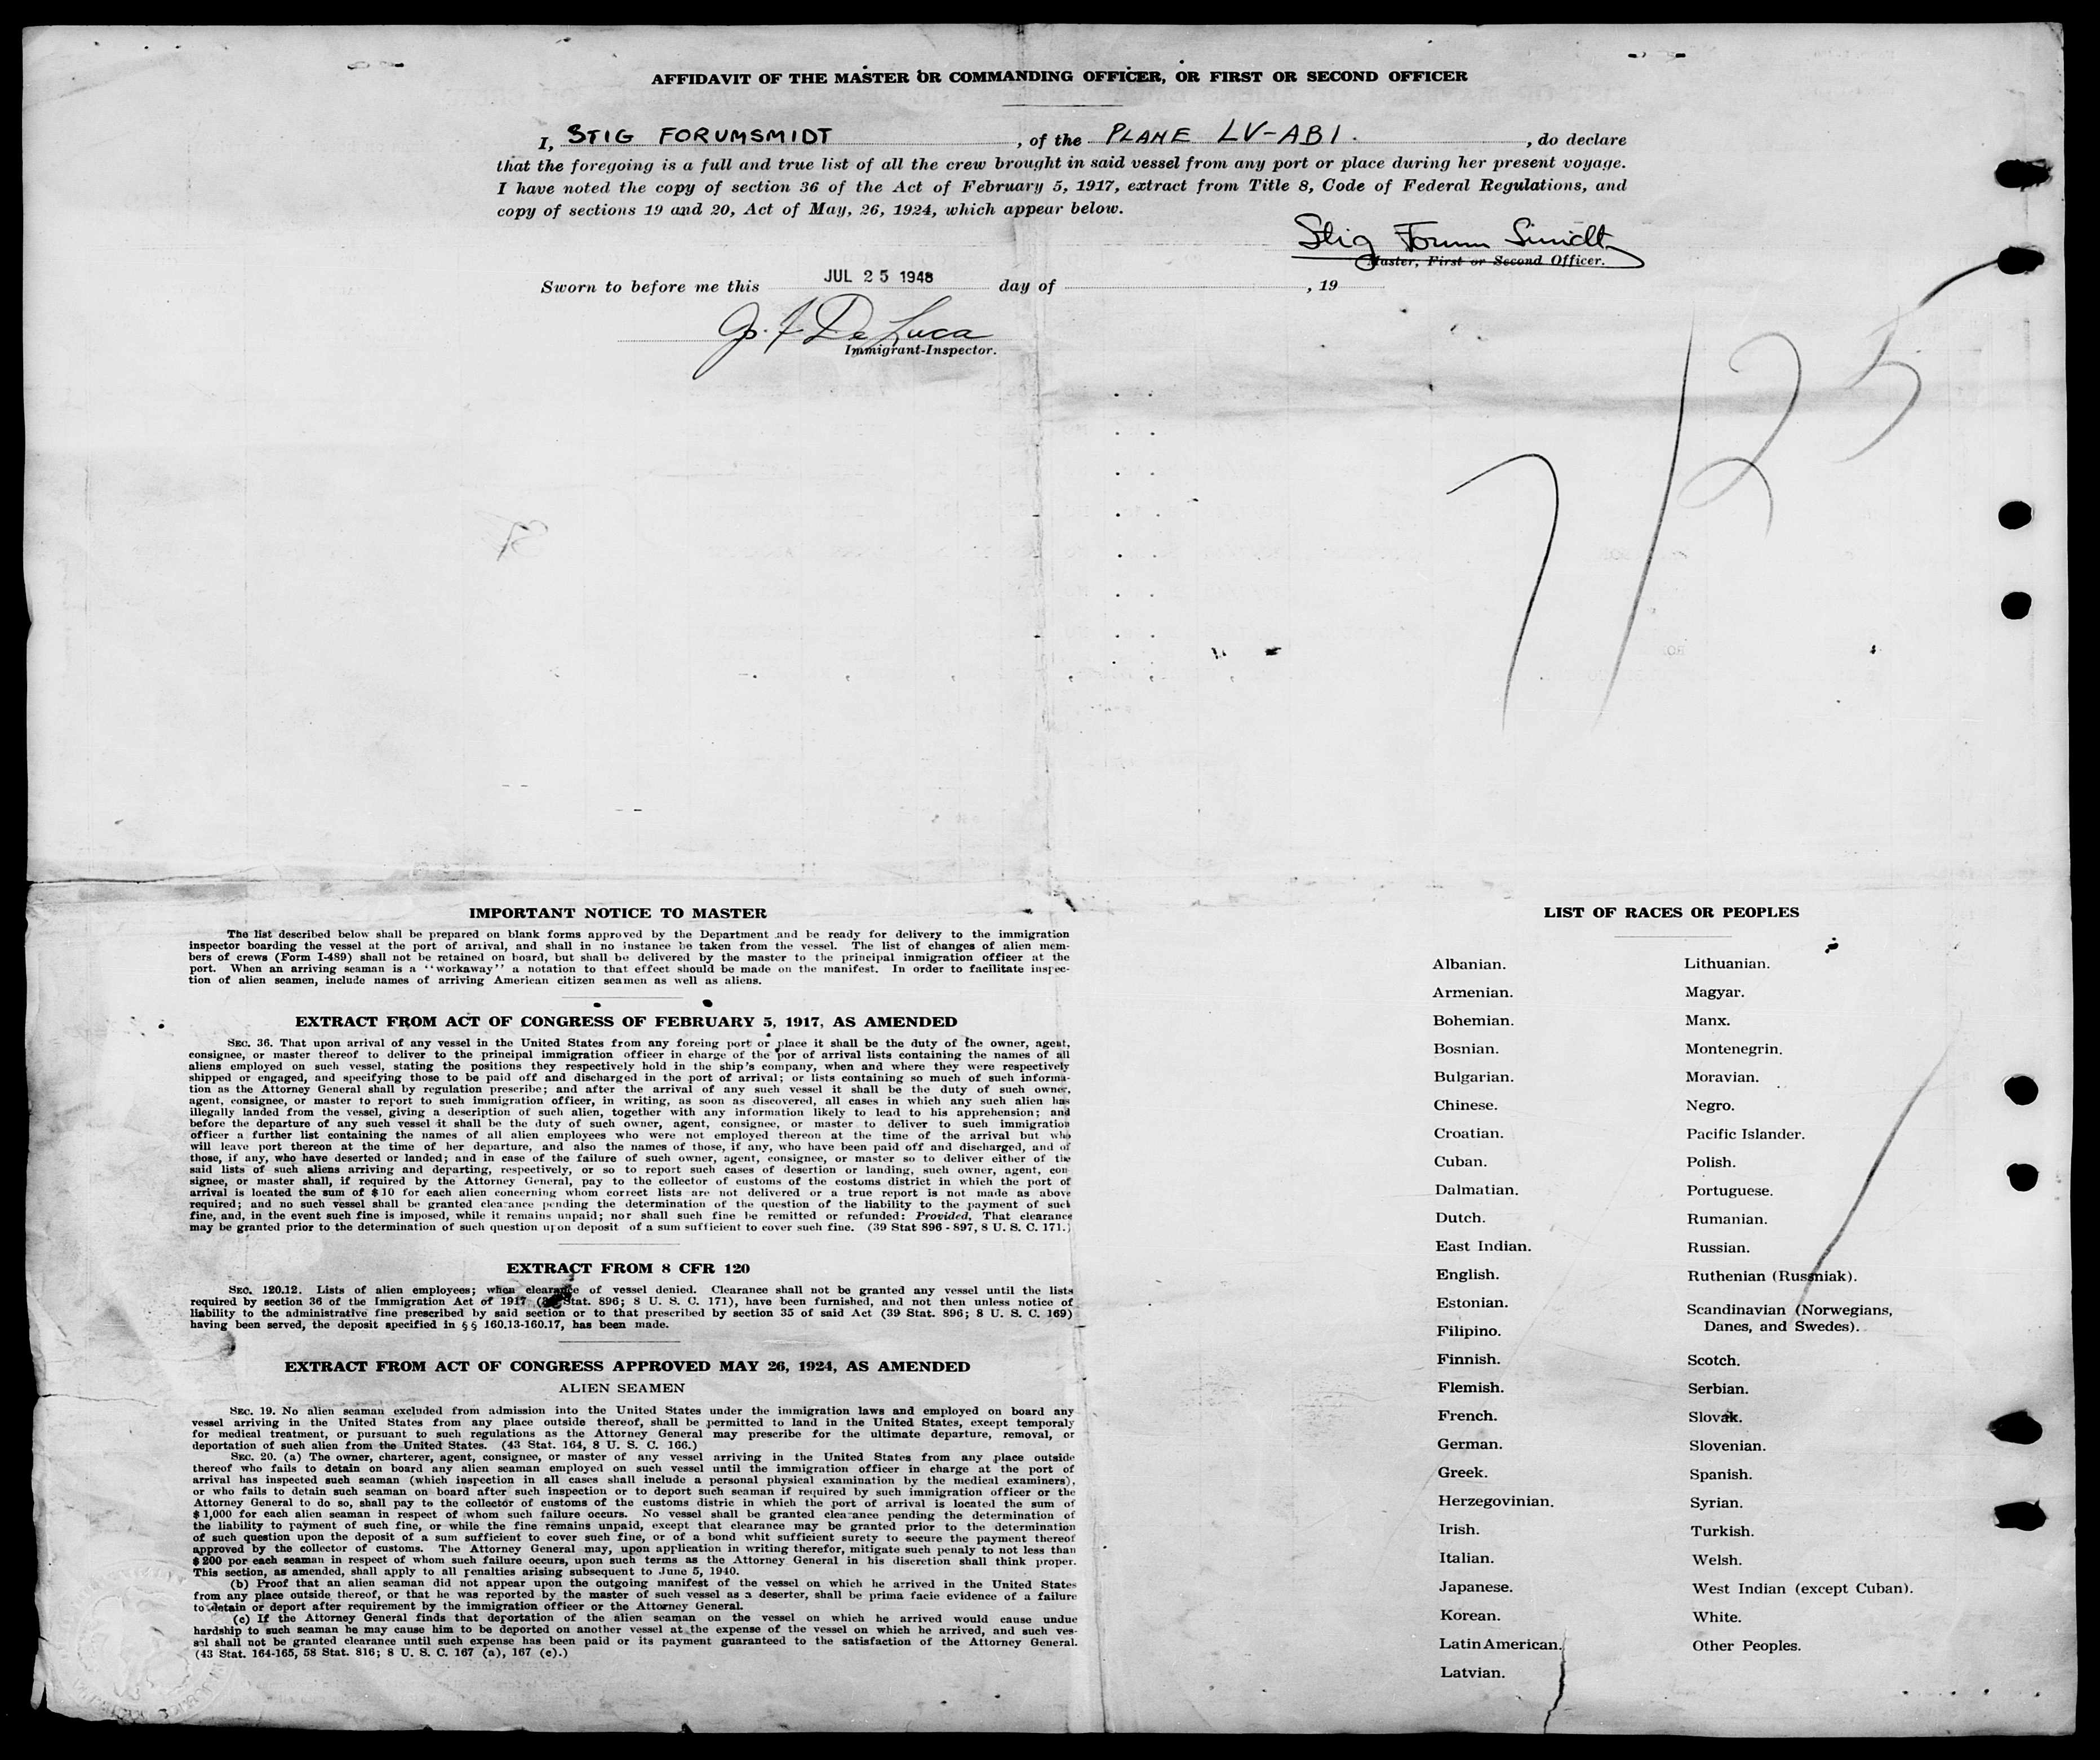 AFFIDAVIT OF THE MASTER OR COMMANDING OFFICER, OR FIRST OR SECOND OFFICER
I, STIG FORUMSMIDT, of the PLANE LV-ABI., do declare
that the foregoing is a full and true list of all the crew brought in said vessel from any port or place during her present voyage.
I have noted the copy of section 36 of the Act of February 5, 1917, extract from Title 8, Code of Federal Regulations, and
copy of sections 19 and 20, Act of May, 26, 1924, which appear below.
Stig Forum Smidt
Master, First or Second Officer.
Sworn to before me this JUL 25 1948 day of , 19
De Luca
Immigrant-Inspector.
7/25
IMPORTANT NOTICE TO MASTER
The list described below shall be prepared on blank forms approved by the Department and be ready for delivery to the immigration
inspector boarding the vessel at the port of arrival, and shall in no instance be taken from the vessel. The list of changes of alien mem-
bers of crews (Form I-489) shall not be retained on board, but shall be delivered by the master to the principal inmigration officer at the
port. When an arriving seaman is a "workaway" a notation to that effect should be made on the manifest. In order to facilitate inspec-
tion of alien seamen, include names of arriving American citizen seamen as well as aliens.
EXTRACT FROM ACT OF CONGRESS OF FEBRUARY 5, 1917, AS AMENDED
SEC. 36. That upon arrival of any vessel in the United States from any foreing port or place it shall be the duty of the owner, agent,
consignee, or master thereof to deliver to the principal immigration officer in charge of the por of arrival lists containing the names of all
aliens employed on such vessel, stating the positions they respectively hold in the ship's company, when and where they were respectively
shipped or engaged, and specifying those to be paid off and discharged in the port of arrival; or lists containing so much of such informa-
tion as the Attorney General shall by regulation prescribe; and after the arrival of any such vessel it shall be the duty of such owner,
agent, consignee, or master to report to such immigration officer, in writing, as soon as discovered, all cases in which any such alien has
illegally landed from the vessel, giving a description of such alien, together with any information likely to lead to his apprehension; and
before the departure of any such vessel it shall be the duty of such owner, agent, consignee, or master to deliver to such immigration
officer a further list containing the names of all alien employees who were not employed thereon at the time of the arrival but who
will leave port thereon at the time of her departure, and also the names of those, if any, who have been paid off and discharged, and of
those, if any, who have deserted or landed; and in case of the failure of such owner, agent, consignee, or master so to deliver either of the
said lists of such aliens arriving and departing, respectively, or so to report such cases of desertion or landing, such owner, agent, con
signee, or master shall, if required by the Attorney General, pay to the collector of customs of the customs district in which the port of
arrival is located the sum of $10 for each alien concerning whom correct lists are not delivered or a true report is not made as above
required; and no such vessel shall be granted clearance pending the determination of the question of the liability to the payment of such
fine, and, in the event such fine is imposed, while it remains unpaid; nor shall such fine be remitted or refunded: Provided, That clearance
may be granted prior to the determination of such question upon deposit of a sum sufficient to cover such fine. (39 Stat 896 - 897, 8 U. S. C. 171.)
EXTRACT FROM 8 CFR 120
SEC. 120.12. Lists of alien employees; when clearance of vessel denied. Clearance shall not be granted any vessel until the lists
required by section 36 of the Immigration Act of 1917 (39 Stat. 896; 8 U. S. C. 171), have been furnished, and not then unless notice of
liability to the administrative fine prescribed by said section or to that prescribed by section 35 of said Act (39 Stat. 896; 8 U. S. C. 169)
having been served, the deposit specified in §§ 160.13-160.17, has been made.
EXTRACT FROM ACT OF CONGRESS APPROVED MAY 26, 1924, AS AMENDED
ALIEN SEAMEN
SEC. 19. No alien seaman excluded from admission into the United States under the immigration laws and employed on board any
vessel arriving in the United States from any place outside thereof, shall be permitted to land in the United States, except temporaly
for medical treatment, or pursuant to such regulations as the Attorney General may prescribe for the ultimate departure, removal, or
deportation of such alien from the United States. (43 Stat. 164, 8 U. S. C. 166.)
SEC. 20. (a) The owner, charterer, agent, consignee, or master of any vessel arriving in the United States from any place outside
thereof who fails to detain on board any alien seaman employed on such vessel until the immigration officer in charge at the port of
arrival has inspected such seaman (which inspection in all cases shall include a personal physical examination by the medical examiners),
or who fails to detain such seaman on board after such inspection or to deport such seaman if required by such immigration officer or the
Attorney General to do so, shall pay to the collector of customs of the customs distric in which the port of arrival is located the sum of
$1,000 for each alien seaman in respect of whom such failure occurs. No vessel shall be granted clearance pending the determination of
the liability to payment of such fine, or while the fine remains unpaid, except that clearance may be granted prior to the determination
of such question upon the deposit of a sum sufficient to cover such fine, or of a bond whit sufficient surety to secure the payment thereof
approved by the collector of customs. The Attorney General may, upon application in writing therefor, mitigate such penaly to not less than
$200 por each seaman in respect of whom such failure occurs, upon such terms as the Attorney General in his discretion shall think proper.
This section, as amended, shall apply to all penalties arising subsequent to June 5, 1940.
(b) Proof that an alien seaman did not appear upon the outgoing manifest of the vessel on which he arrived in the United States
from any place outside thereof, or that he was reported by the master of such vessel as a deserter, shall be prima facie evidence of a failure
to detain or deport after requirement by the immigration officer or the Attorney General.
(c) If the Attorney General finds that deportation of the alien seaman on the vessel on which he arrived would cause undue
hardship to such seaman he may cause him to be deported on another vessel at the expense of the vessel on which he arrived, and such ves-
sel shall not be granted clearance until such expense has been paid or its payment guaranteed to the satisfaction of the Attorney General.
(43 Stat. 164-165, 58 Stat. 816; 8 U. S. C. 167 (a), 167 (c).)
LIST OF RACES OR PEOPLES
Albanian.
Armenian.
Bohemian.
Bosnian.
Bulgarian.
Chinese.
Croatian.
Cuban.
Dalmatian.
Dutch.
East Indian.
English.
Estonian.
Filipino.
Finnish.
Flemish.
French.
German.
Greek.
Herzegovinian.
Irish.
Italian.
Japanese.
Korean.
Latin American.
Latvian.
Lithuanian.
Magyar.
Manx.
Montenegrin.
Moravian.
Negro.
Pacific Islander.
Polish.
Portuguese.
Rumanian.
Russian.
Ruthenian (Russniak).
Scandinavian (Norwegians,
Danes, and Swedes).
Scotch.
Serbian.
Slovak.
Slovenian.
Spanish.
Syrian.
Turkish.
Welsh.
West Indian (except Cuban).
White.
Other Peoples.